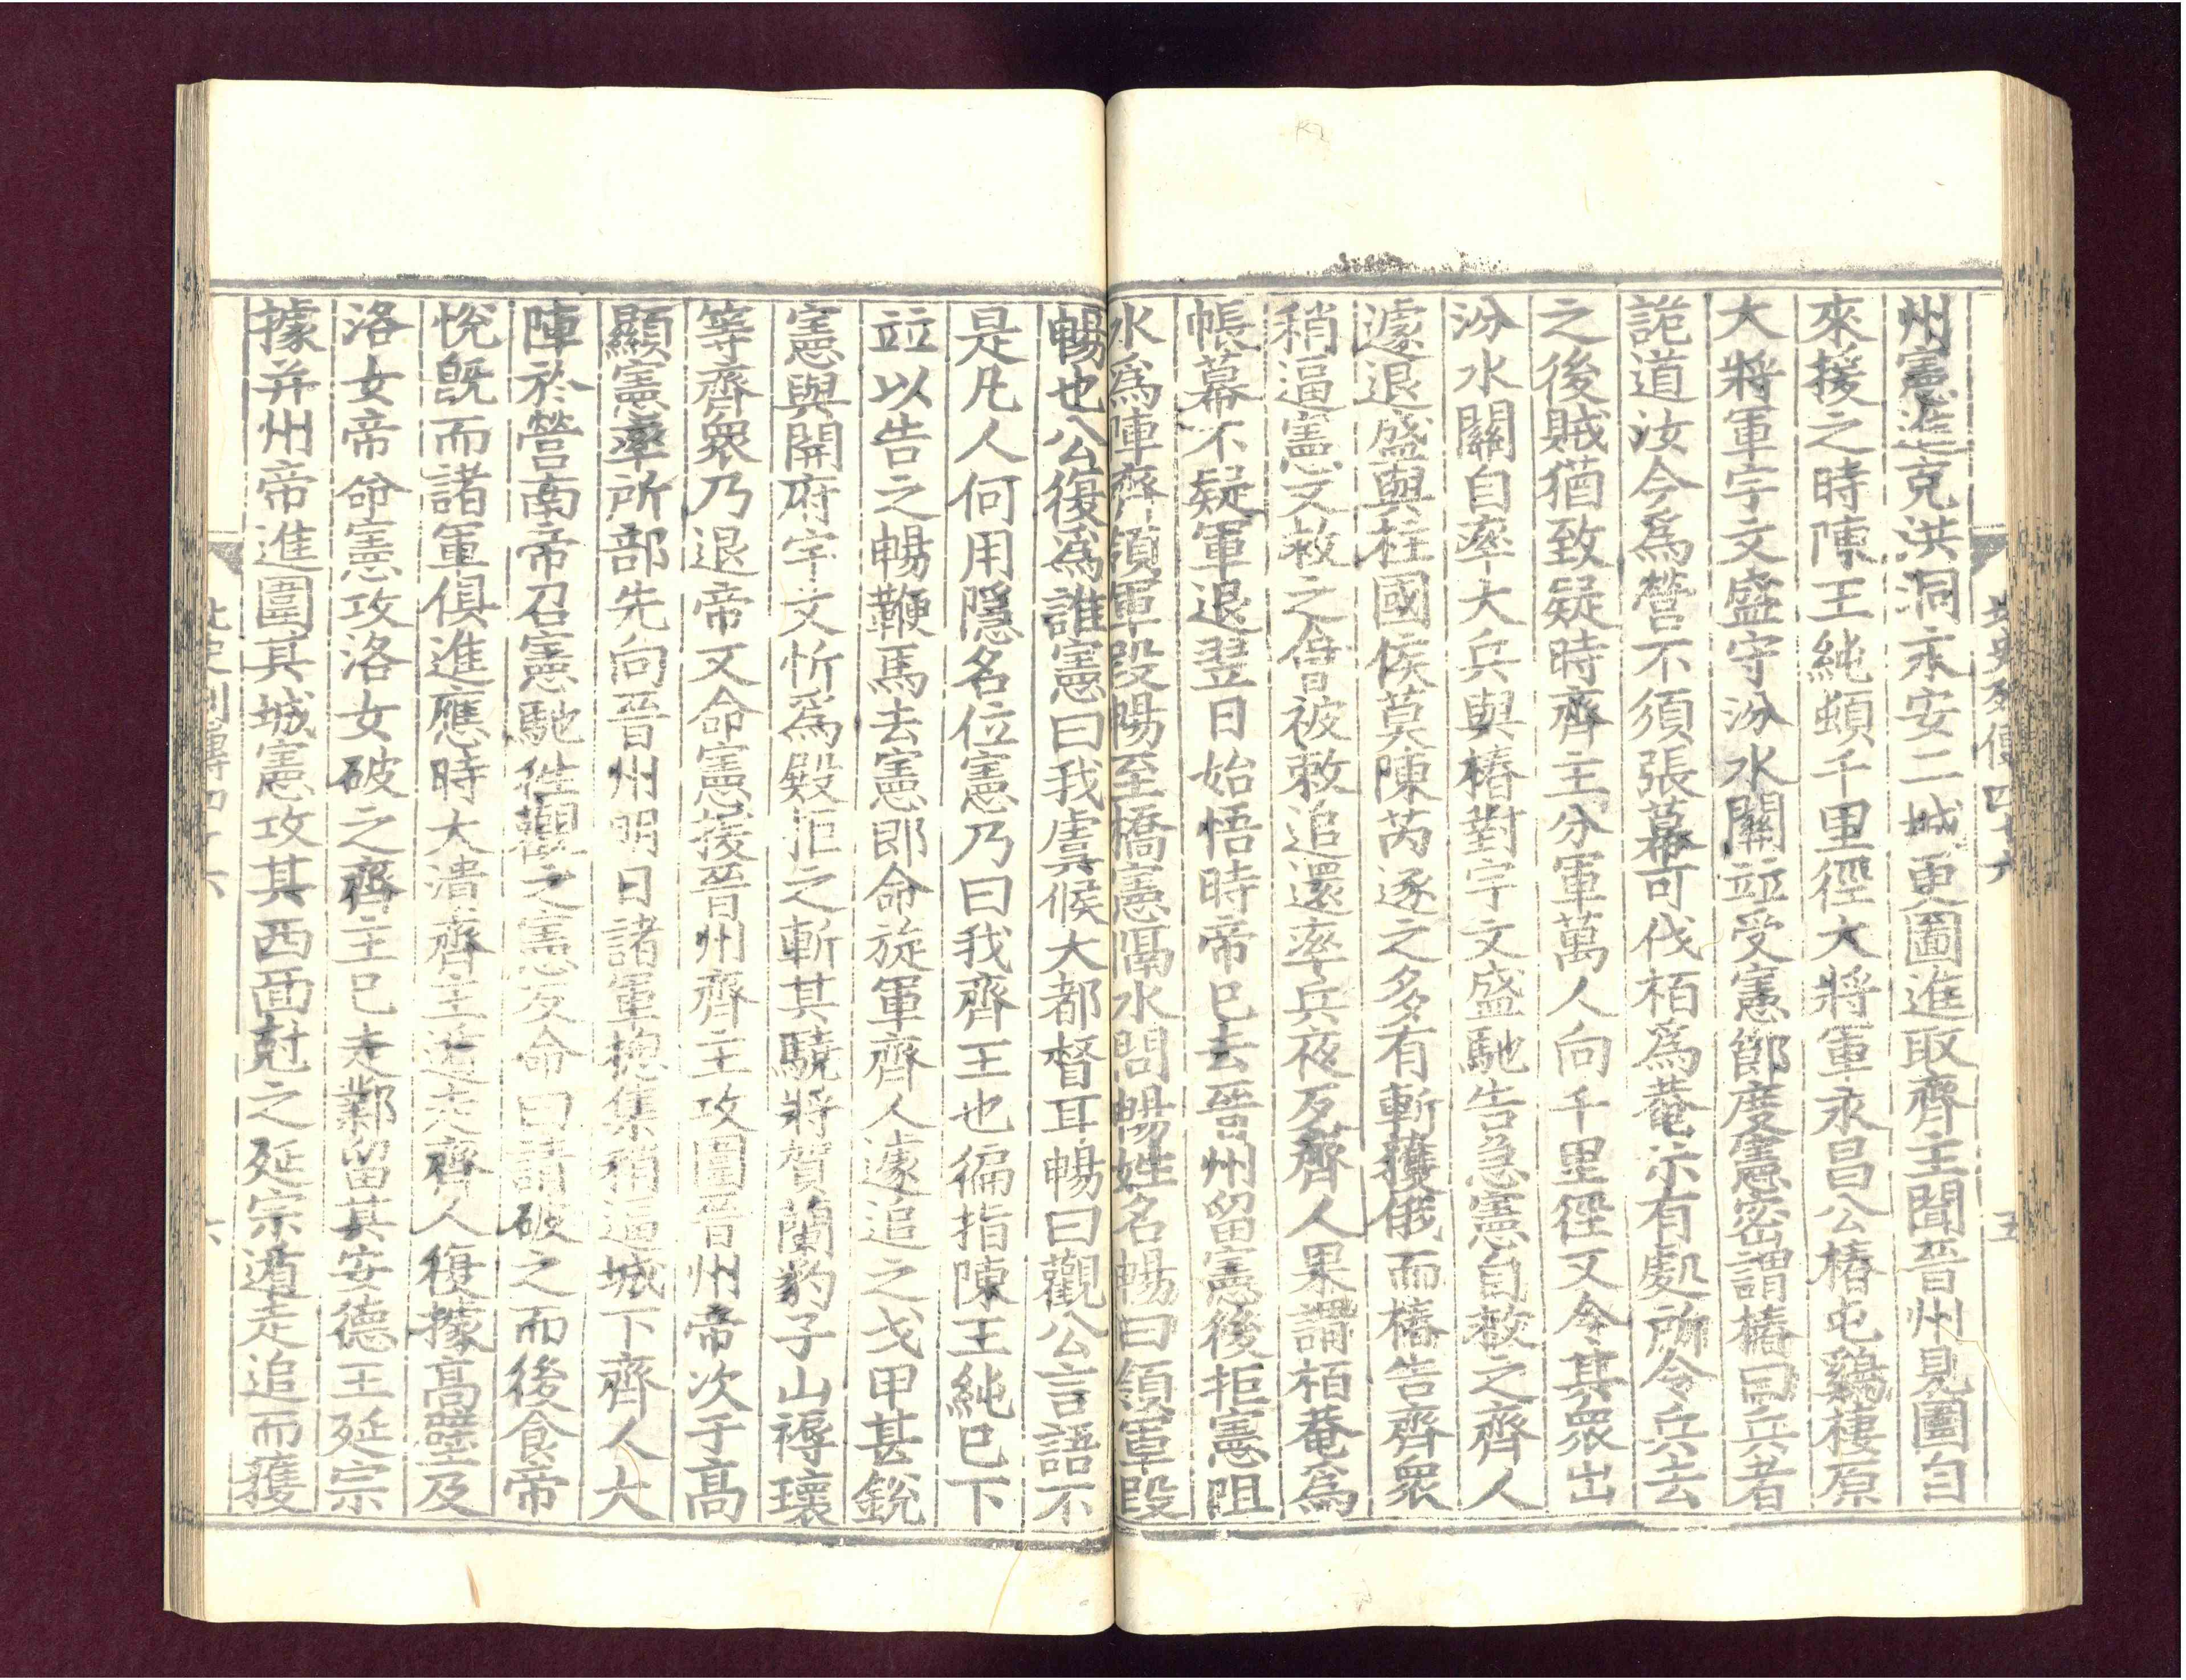 北史列傳四十六
五
州憲進克洪洞永安二城更圖進取齊主聞晋州見圍自
來援之時陳王純頓千里徑大將軍永昌公椿屯鷄棲原
大將軍宇文盛守汾水關竝受憲節度憲密謂椿曰兵者
詭道汝今爲營不須張幕可伐栢爲菴示有處所令兵去
之後賊猶致疑時齊主分軍萬人向千里徑又令其衆出
汾水關自率大兵與椿對宇文盛馳告急憲自救之齊人
遽退盛與柱國侯莫陳芮逐之多有斬獲俄而椿告齊衆
稍逼憲又救之會被敕追還率兵夜歹齊人果謂栢菴爲
帳幕不疑軍退翌日始悟時帝已去晉州留憲後拒憲阻
水爲陣齊領軍段暢至橋憲隔水問暢姓名暢曰領軍段
暢也公復爲誰憲曰我虞候大都督耳暢曰觀公言語不
是凡人何用隱名位憲乃曰我齊王也徧指陳王純已下
竝以告之暢鞭馬去憲郎命旋軍齊人遽追之戈甲甚銳
憲與開府宇文忻爲殿拒之斬其驍將賀蘭豹子山褥瓌
等齊衆乃退帝又命憲援晉州齊主攻圍晉州帝次于高
顯憲率所部先向晉州明日諸軍摠集稍逼城下齊人大
陣於營南帝召憲馳往觀之憲反命曰請破之而後食帝
悅旣而諸軍俱進應時大潰齊主遁走齊人復據高壁及
洛女帝命憲攻洛女破之齊主已走鄴留其安德王延宗
據并州帝進圍其城憲攻其西面尅之延宗遁走追而獲
北史列傳四十六
六